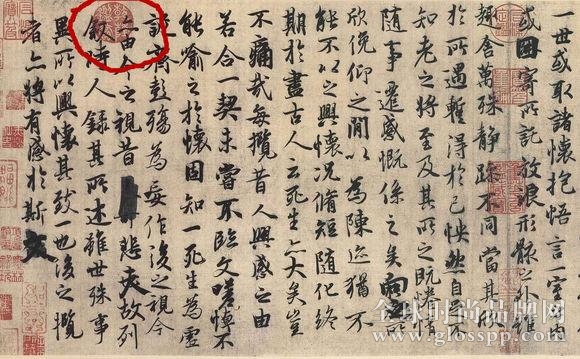 仰一世或取諸懷抱悟言一室之內
或因寄所託放浪形骸之外雖
趣舍萬殊靜躁不同當其欣
於所遇暫得於己怏然自足不
知老之將至及其所之既惓情
隨事遷感慨係之矣向之所
欣俛仰之閒以為陳迹猶不
能不以之興懷況脩短隨化終
期於盡古人云死生亦大矣豈
不痛哉每攬昔人興感之由
若合一契未嘗不臨文嗟悼不
能喻之於懷固知一死生為虛
誕齊彭殤為妄作後之視今
亦由今之視昔悲夫故列
敘時人錄其所述雖世殊事
異所以興懷其致一也後之攬
者亦將有感於斯文
全球时尚品牌网
www.chinasspp.com